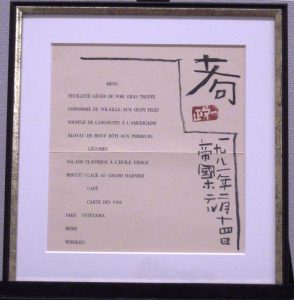 MENU
FEUILLETÉ LÉGER DE FOIE GRAS TRUFFÉ
CONSOMMÉ DE VOLAILLE AUX ŒUFS FILÉS
SOUFFLÉ DE LANGOUSTE À L'AMERICAINE
ALOYAU DE BŒUF RÔTI AUX PRIMEURS
LÉGUMES
SALADE CLASSIQUE À L'HUILE VIERGE
BISCUIT GLACÉ AU GRAND MARNIER
CAFÉ
CARTE DES VINS
SAKE TATEYAMA
BIÈRE
WHISKIES
一九八一年二月十四日